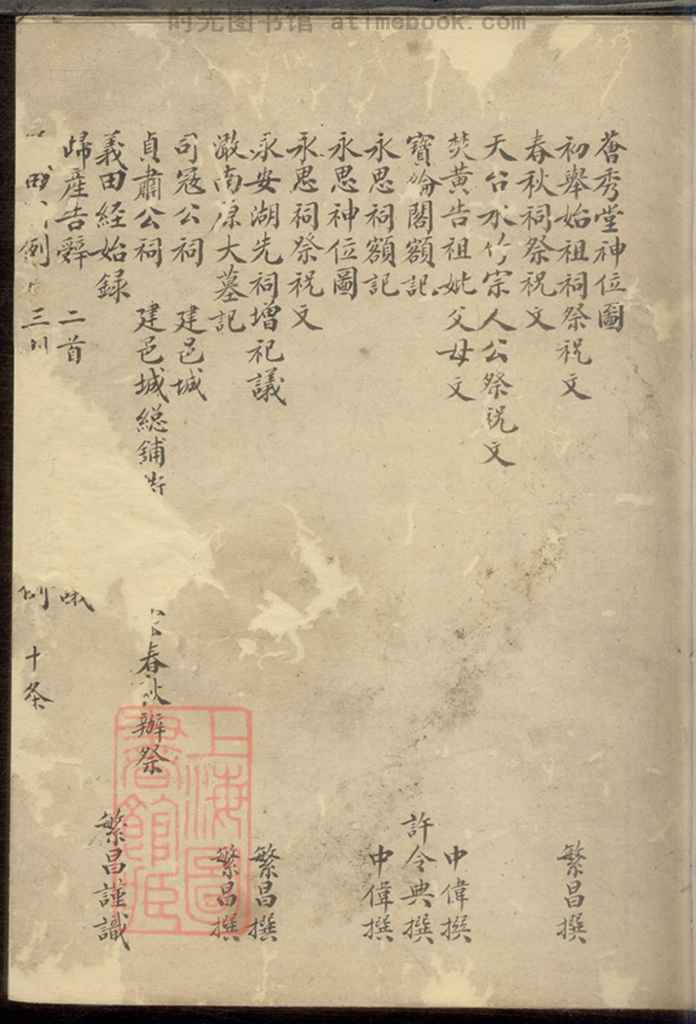 时光图书馆 www.atimebook.com
薈秀堂神位圖
初舉始祖祠祭祝文 繁昌撰
春秋祠祭祝文
天台水竹宗人公祭祝文
焚黃告祖妣父母文 中偉撰
寶綸閣額記 許令典撰
永思祠額記 中偉撰
永思神位圖
永思祠祭祝文
永安湖先祠增祀議 繁昌撰
澉南原大墓記 繁昌撰
司寇公祠 建邑城
貞肅公祠 建邑城總鋪 春秋辦祭
義田經始録 繁昌謹識
歸產告辭 二首
田 例 三 十条
上海圖書館藏